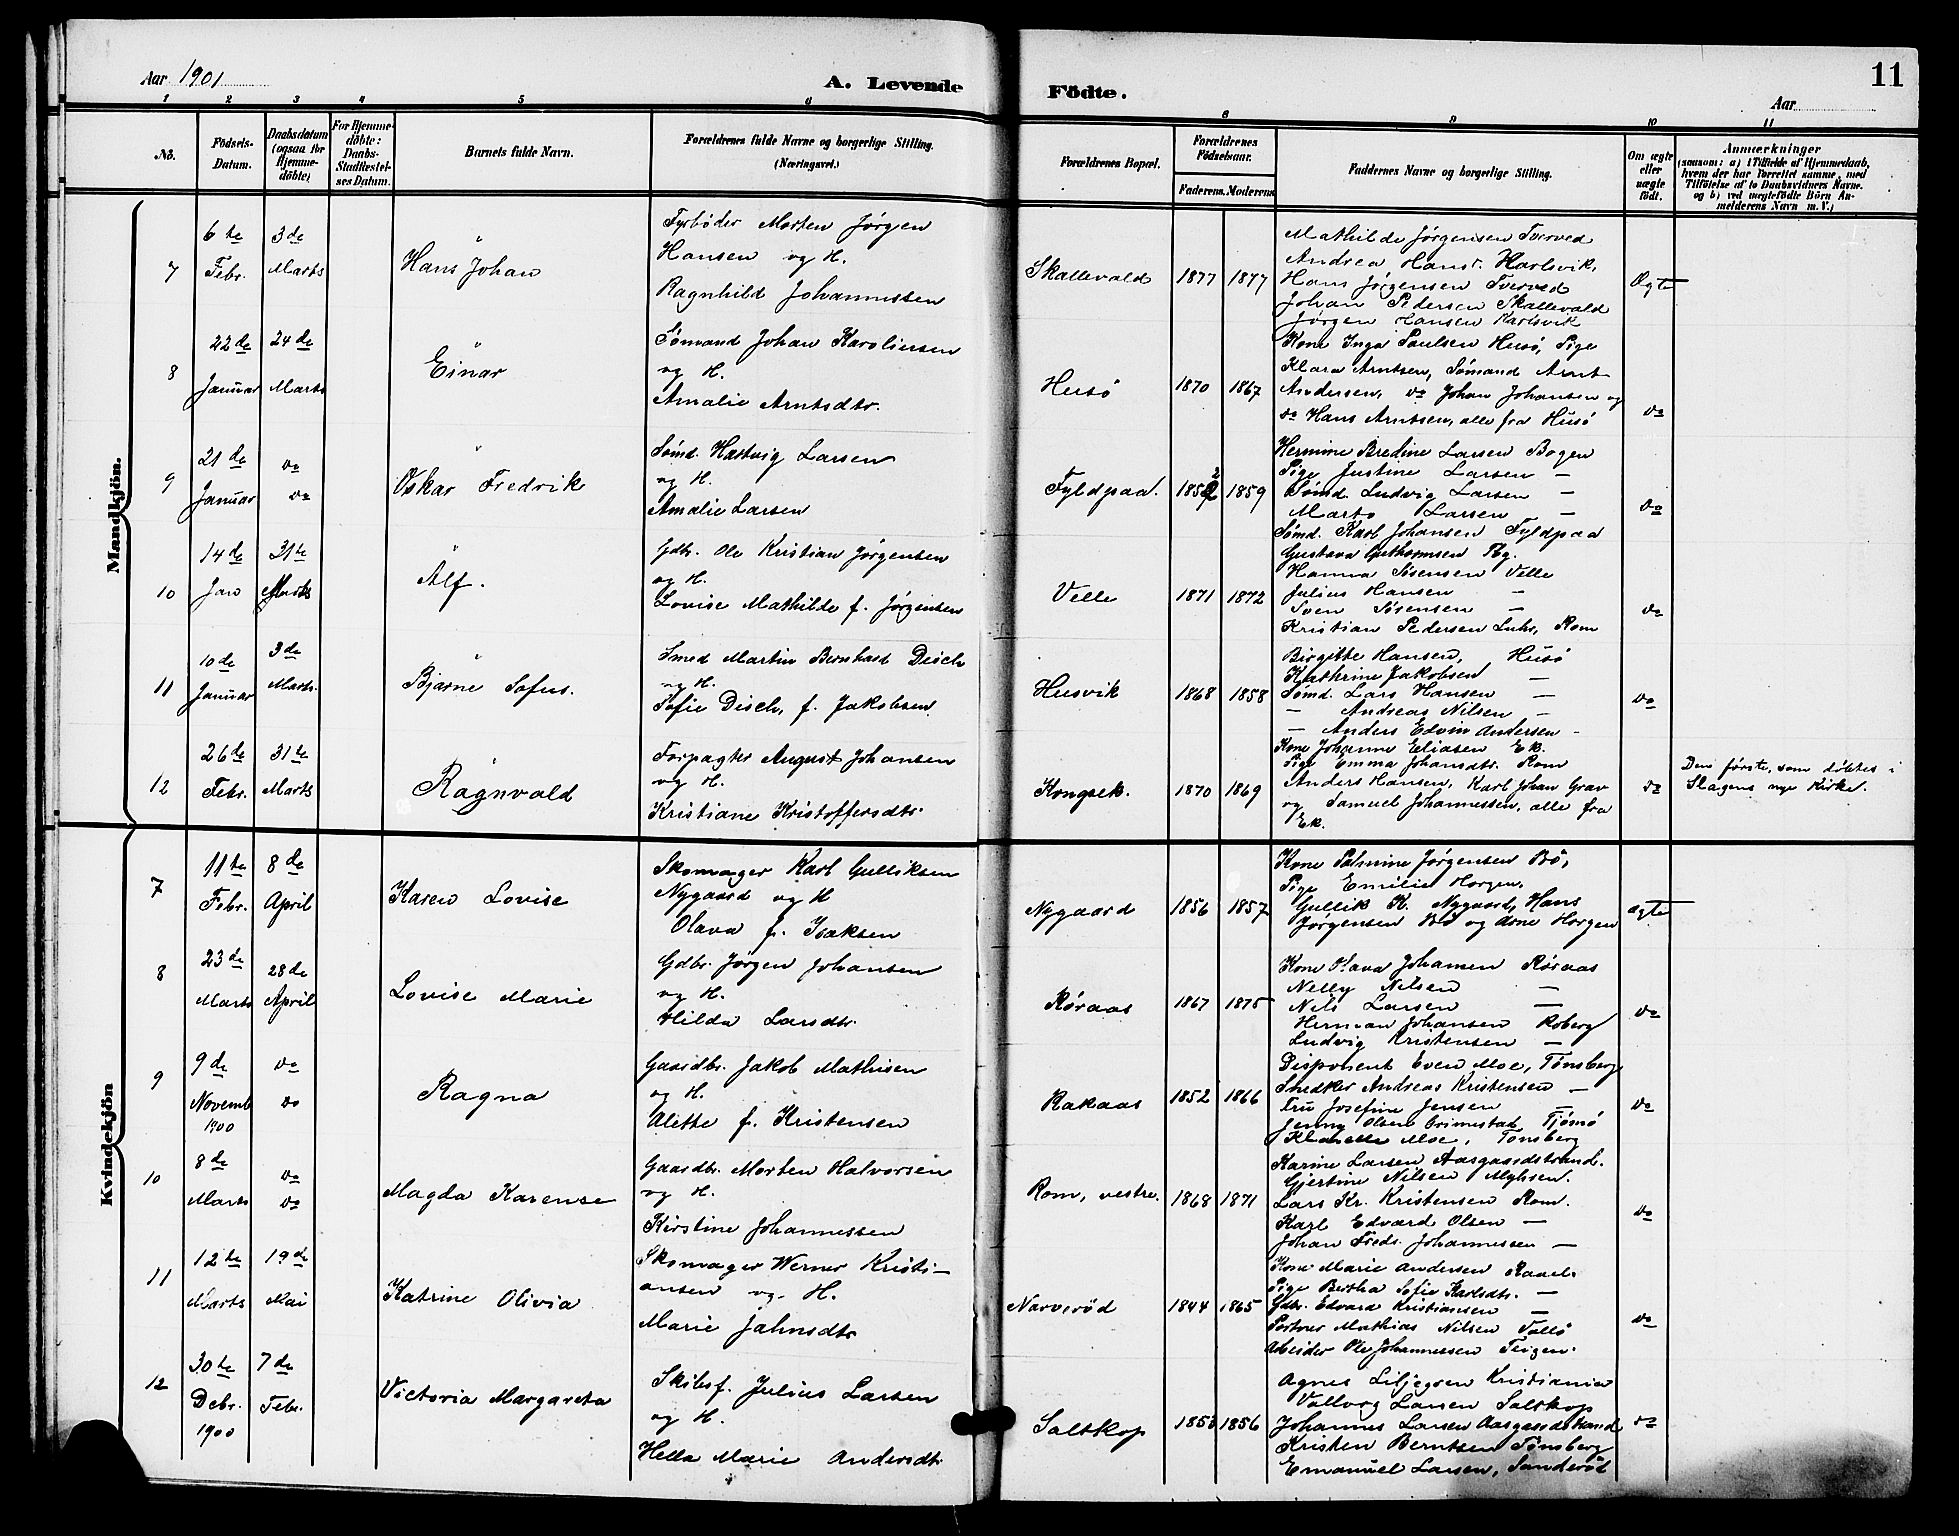 Aar 1901
A. Levende Födte.
Aar
11
1 2 3 4 5 6 8 9 10 11
No.
Födsels-Datum.
Daabsdatum (ogsaa for Hjemme-döbte)
For Hjemme-döbte: Daabs-Stadfæstel-ses Datum.
Barnets fulde Navn.
Forældrenes fulde Navne og borgerlige Stilling. (Næringsvei.)
Forældrenes Bopæl.
Forældrenes Födselsaar.
Faderens. Moderens.
Faddernes Navne og borgerlige Stilling.
Om ægte eller uægte födt.
Anmærkninger
(saasom: a) i Tilfælde af Hjemmedaab,
hvem der har forrettet samme, med
Tilföielse af to Daabsvidners Navne.
og b) ved uægtefödte Börn An-
melderens Navn m. V.)
Mandkjön.
7
6te Febr.
3de Marts
Hans Johan
Fyrbøder Morten Jørgen
Hansen og H.
Ragnhild Johannessen
Skallevald
1877 1877
Mathilde Jørgensen Tverved
Andrea Hans. Karlsvik,
Hans Jørgensen Tverved
Johan Pedersen Skallevald
Jørgen Hansen Karlsvik
Ægte
8
22de Januar
24de Marts
Einar
Sømand Johan Karoliusen
og H.
Amalie Arntsdtr.
Husø
1870 1867
Kone Inga Paulsen Husø, Pige
Klara Arntsen, Sømand Arnt
Andersen, do Johan Johansen og
do Hans Arntsen, alle fra Husø
do
9
21de Januar
do do
Oskar Fredrik
Sømd. Hartvig Larsen
og H.
Amalie Larsen
Fyldpaa.
1852 1859
Hermine Bredine Larsen Bogen
Pige Justine Larsen —
Sømd. Ludvig Larsen —
Larsen —
Sømd. Karl Johansen Fyldpaa
do
10
14de Jan
31te Marts
Alf.
Gdbr. Ole Kristian Jørgensen
og H.
Lovise Mathilde f. Jørgensen
Velle
1871 1872
Gustava Guthormsen Tbg.
Hanna Sørensen Velle
Julius Hansen —
Sven Sørensen —
Kristian Pedersen Rom
do
11
10de Januar
3de Marts.
Bjarne Sofus.
Smed Martin Bernhard Disch
og H.
Sofie Disch, f. Jakobsen
Husvik
1868 1858
Birgitte Hansen, Husø
Kathrine Jakobsen —
Sømd. Lars Hansen —
— Andreas Nilsen —
— Anders Edvin Andersen -
do
12
26de Febr.
31te Marts
Ragnvald
Forpagter August Johansen
og H.
Kristiane Kristoffersdtr.
Kongsek.
1870 1869
Kone Johanne Eliasen Ek.
Pige Emma Johansdtr. Rom
Anders Hansen, Karl Johan Grav
og Samuel Johannessen, alle fra
Ek.
do
Den første, som døbtes i
Slagens nye Kirke.
Kvindekjön
7
11te Febr.
8de April
Karen Lovise
Skomager Karl Gulliksen
Nygaard og H
Olava f. Isaksen
Nygaard
1856 1857
Kone Palmine Jørgensen Bø,
Pige Emilie Horgen,
Gullik K. Nygaard, Hans
Jørgensen Bø og Arne Horgen
ægte
8
23de Marts
28de April
Lovise Marie
Gdbr. Jørgen Johansen
og H.
Hilda Larsdtr.
Røraas
1867 1875
Kone Olava Johansen Røraas
Nelly Nilsen —
Nils Larsen —
Herman Johansen Roberg
Ludvig Kristensen —
do
9
9de Novemb 1900
do do
Ragna
Gaardbr. Jakob Mathisen
og H.
Alette f. Kristensen
Rakaas
1852 1866
Disponent Even Moe, Tønsberg
Snedker Andreas Kristensen —
Fru Josefine Jensen —
Jenny Olsen Grimestad, Tjømø
Moe, Tønsberg
do
10
8de Marts
do do
Magda Karense
Gaardbr. Morten Halvorsen
og H.
Kirstine Johannessen
Rom, vestre.
1868 1871
Karine Larsen Aasgaardstrand.
Gjertine Nilsen
Lars Kr. Kristensen Rom.
Karl Edvard Olsen —
Johan Fredr. Johannessen —
do
11
12te Marts
19de Mai
Katrine Olivia
Skomager Werner Kristi-
ansen og H.
Marie Jahnsdtr
Narverød
1844 1865
Kone Marie Andersen
Pige Bertha Sofie Karlsdtr. —
Gdbr. Edvard Kristiansen —
Mathias Nilsen Vallø
Arbeider Ole Johannessen Teigen.
do
12
30te Debr. 1900
7de Febr.
Victoria Margareta
Skibsf. Julius Larsen
og H.
Hella Marie Andersdtr
Saltkop
1853 1856
Agnes Liljegren Kristiania
Valborg Larsen Saltkop
Johannes Larsen Aasgaardstrand
Kristen Berntsen Tønsberg
Emanuel Larsen, Sanderød
do